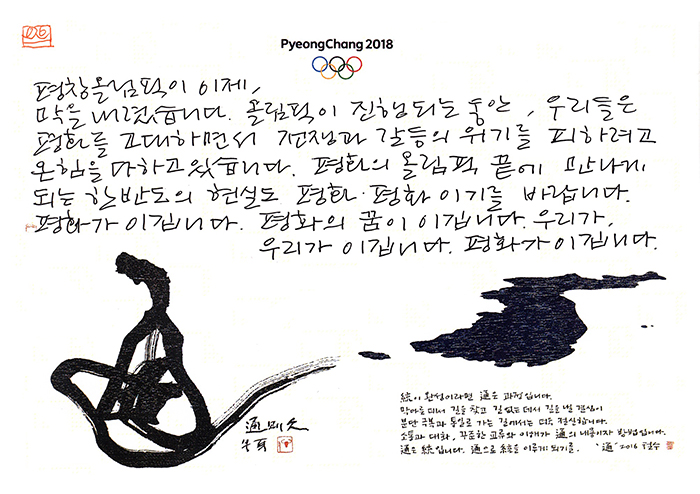 PyeongChang 2018
평창올림픽이 이제,
막을 내렸습니다. 올림픽이 진행되는 동안, 우리들은
평화를 고대하면서 전쟁과 갈등의 위기를 피하려고
온힘을 다하고 있습니다. 평화의 올림픽 끝에 만나게
되는 한반도의 현실도 평화·평화이기를 바랍니다.
평화가 이깁니다. 평화의 꿈이 이깁니다. 우리가,
우리가 이깁니다. 평화가 이깁니다.
通則久
統이 완성이라면 通은 과정입니다.
막힌 데서 길을 찾고 길 없는 데서 길을 낼 결심이
분단 극복과 통일로 가는 길에서는 더욱 절실합니다.
소통과 대화, 꾸준한 교류와 이해가 通의 내용이자 방법입니다.
通은 統입니다. 通으로 統을 이루게 되기를. '通' 2016 철수